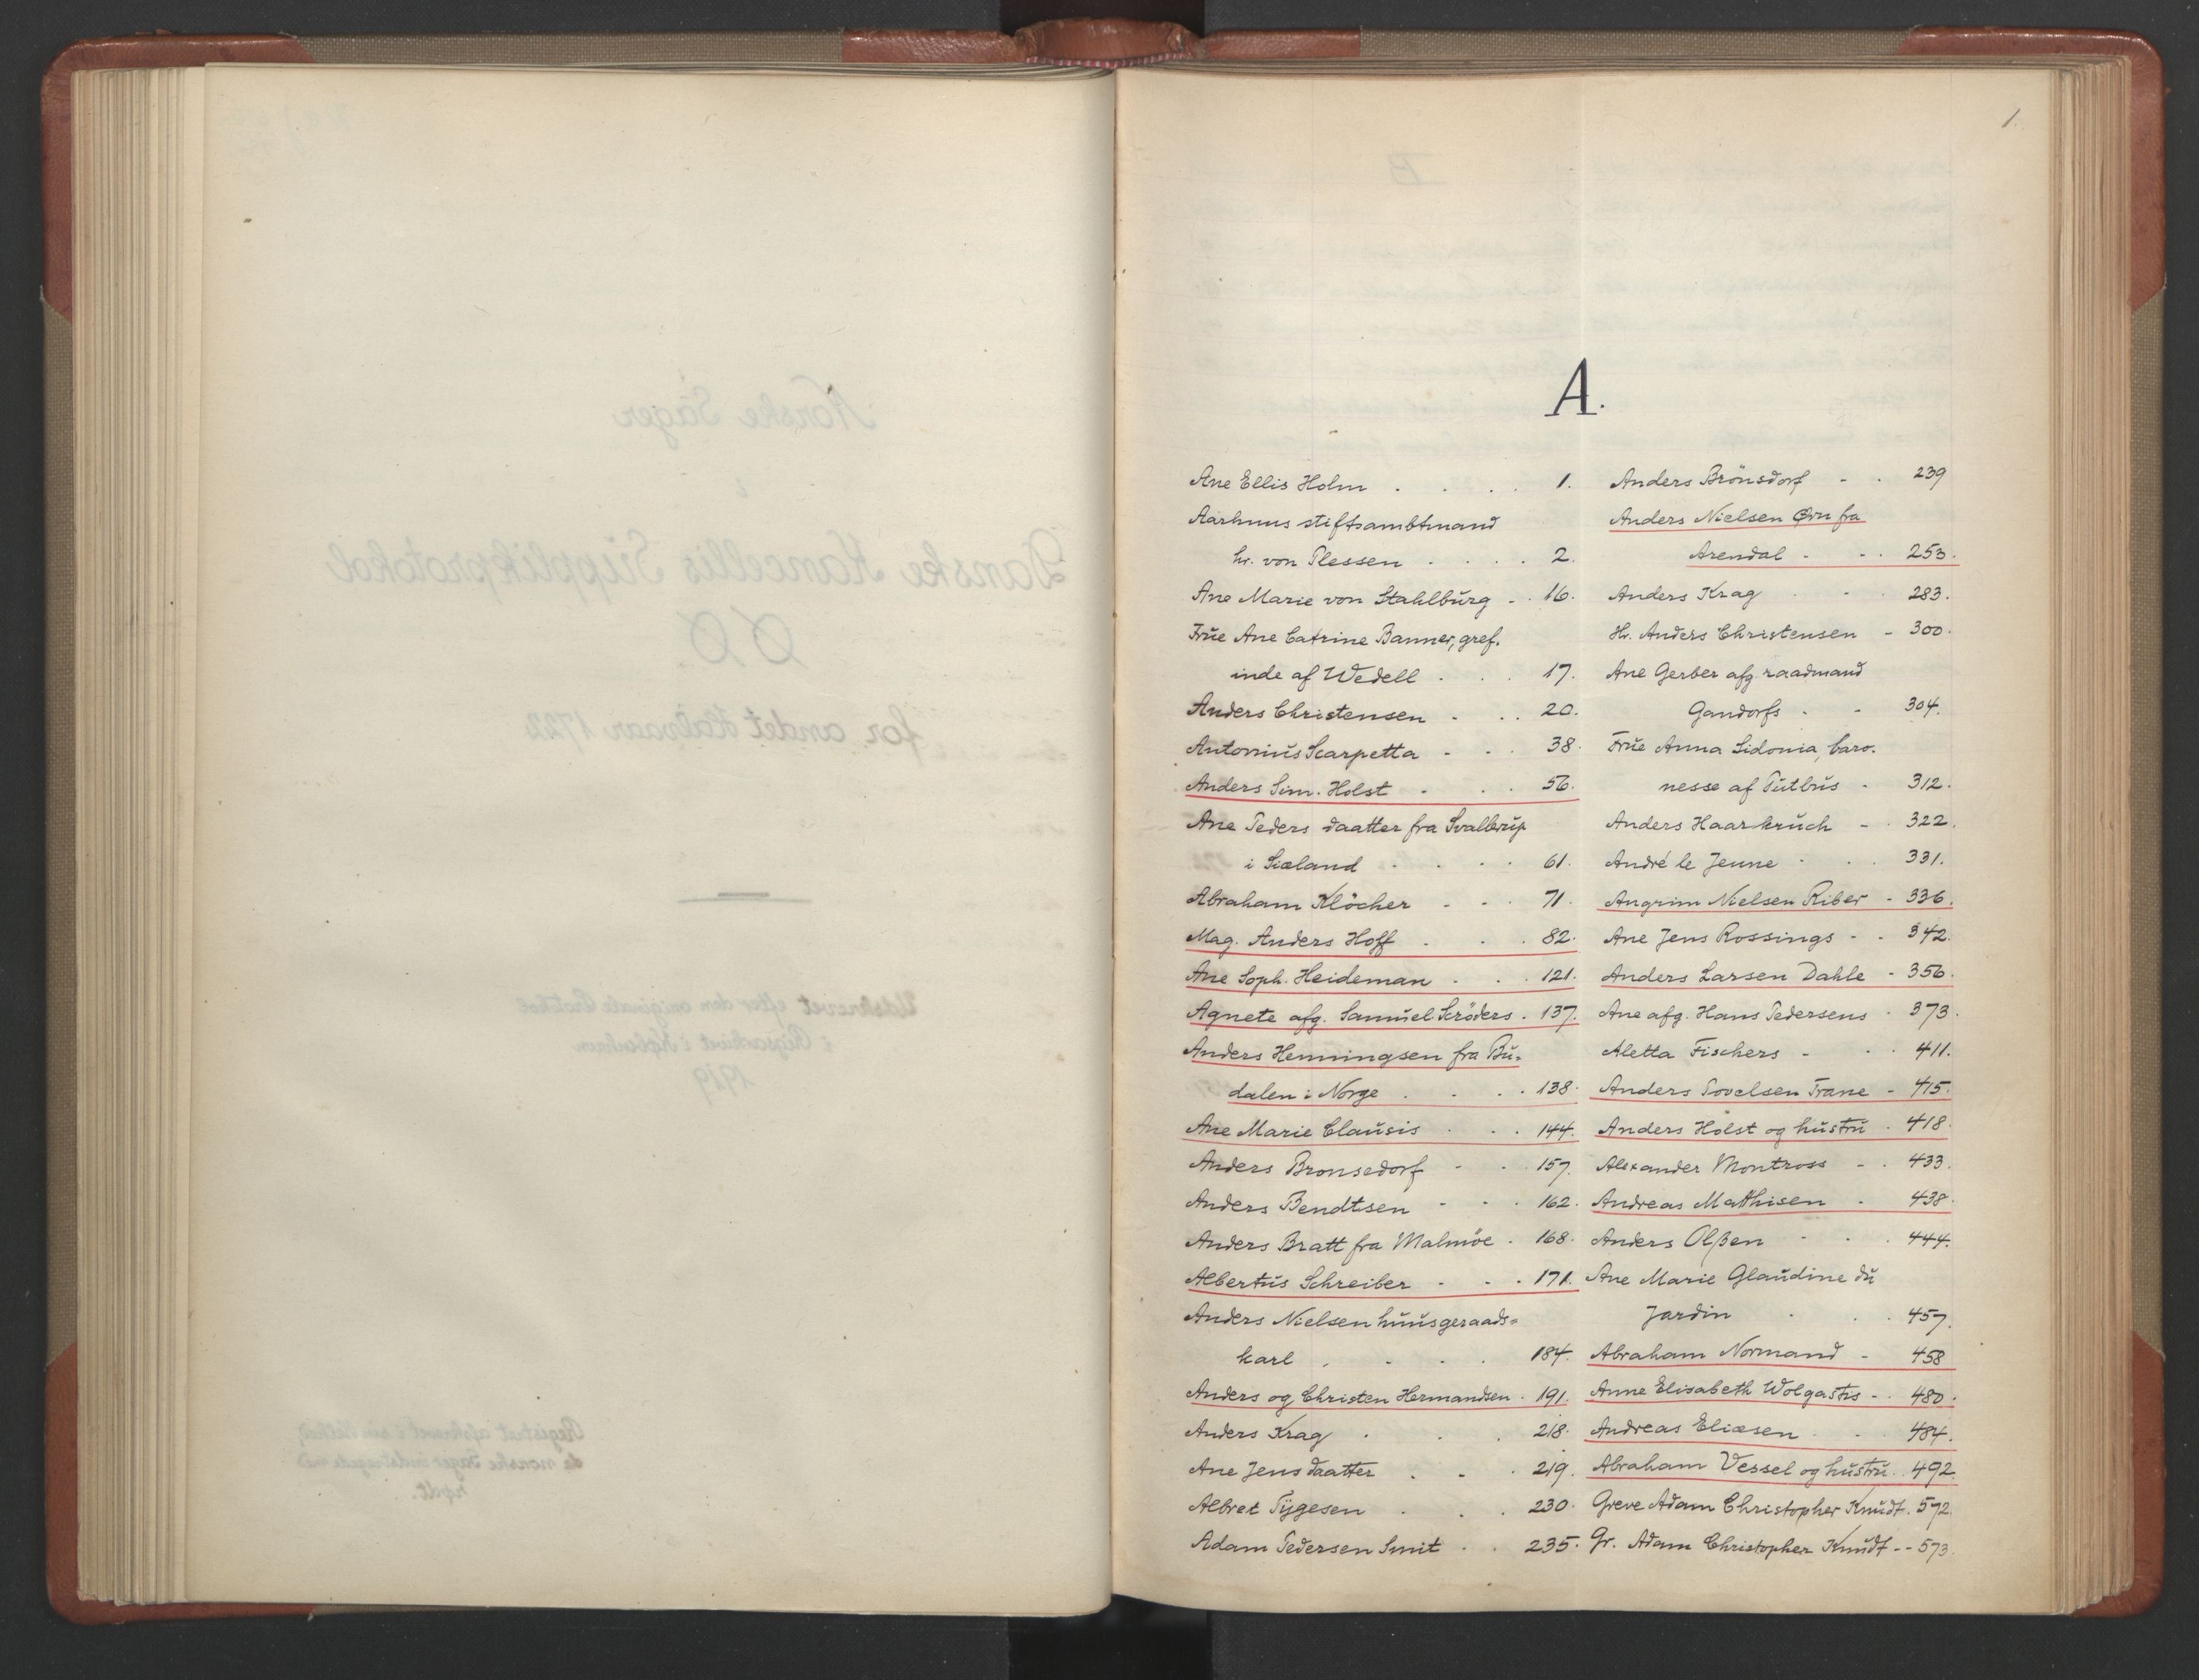 Norske Sager
i
Danske Kancellis Supplikprotokol
for andet Halvaar 1722
Udskrevet efter den originale Protokol
i Rigsarkivet i København
1919
de norske Sager understregede med
rødt.
1.
A.
Ane Ellis Holm . . . . 1.
Aarhuus stiftsambtmand
hr. von Plessen . . . . 2.
Ane Marie von Stahlburg - . 16.
Frue Ane Catrine Banner, gref.
inde af Wedell . . . 17.
Anders Christensen - . . 20.
Antonius Scarpetta - - . 38.
Anders Sim. Holst - . . 56.
Ane Peders daatter fra Svallerup
i Siæland . . . . 61.
Abraham Klöcher - - . 71.
Mag. Anders Hoff . . . 82.
Ane Soph. Heideman . . . 121.
Agnete afg. Samuel Scröders . 137.
Anders Henningsen fra Bu-
dalen i Norge . . . . 138.
Ane Marie Clausis . . . 144.
Anders Bronsedorf - - . 157.
Anders Bendtsen - - . 162.
Anders Bratt fra Malmöe . 168.
Albertus Schreiber - - . 171.
Anders Nielsen huusgeraads=
karl , - . . 184.
Anders og Christen Hermandsen . 191.
Anders Krag . . . 218.
Ane Jens daatter . - . 219.
Albret Tÿgesen . . . 230.
Adam Pedersen Smit . . 235.
Anders Brönsdorf - . 239
Anders Nielsen Ørn fra
Arendal - - . 253.
Anders Krag . - . 283.
Hr. Anders Christensen - 300.
Ane Gerber afg. raadmand
Gandorfs . - 304.
Frue Anna Sidonia, baro.
nesse af Putbus - 312.
Anders Haarkruch - . 322.
André le Jeune . . . 331.
Angrim Nielsen Riber - 336.
Ane Jens Rossings - . 342.
Anders Larsen Dahle - 356.
Ane afg. Hans Pedersens . 373.
Aletta Fischers - . . 411.
Anders Povelsen Trane - 415.
Anders Holst og hustru . 418.
Alexander Montross - . 433.
Andreas Matthisen - 438.
Anders Olßen - . . 444.
Ane Marie Glaudine du
Jardin . . . 457.
Abraham Normand - 458
Anne Elisabeth Wolgastis - . 480.
Andreas Eliæsen . . . 484.
Abraham Vessel og hustru . . 492.
Greve Adam Christopher Knudt . 572.
Gr. Adam Christopher Knudt - - 573.